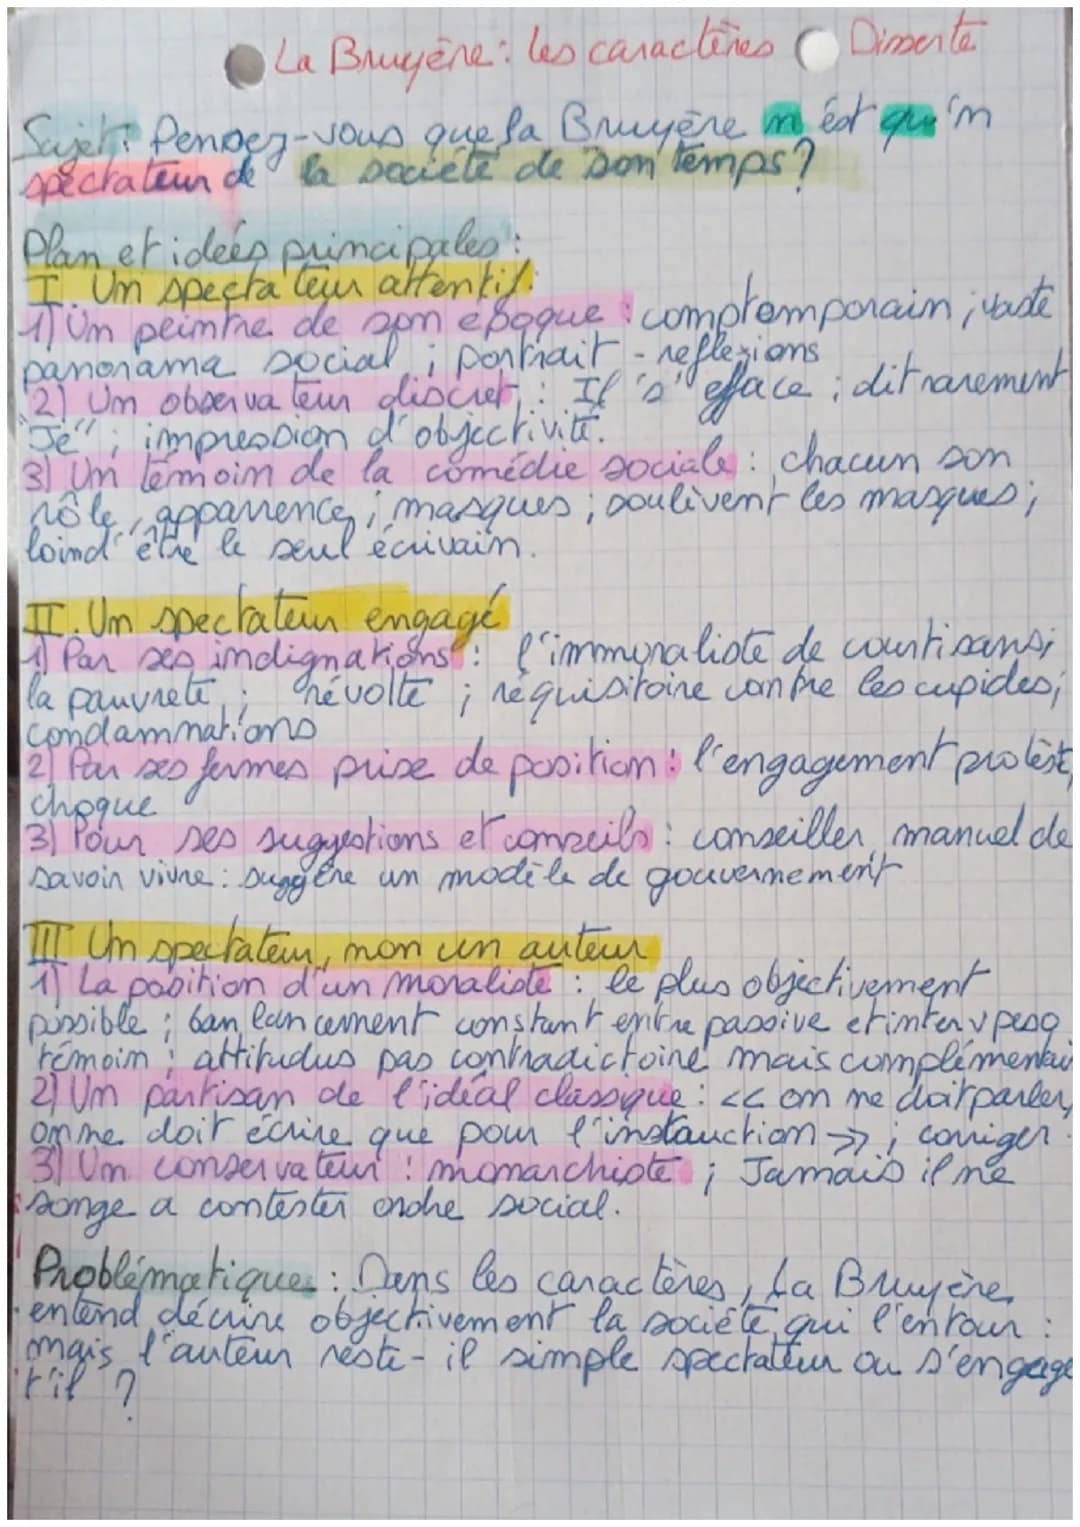 La Bruyère : les caractères Disserte
Sujet : Pensez-vous que La Bruyère n'est qu'm
spectateur de la société de son temps ?
Plan et idées principales :
I. Un spectateur attentif.
1) Un peintre de son époque : comptemporain ; vaste
panorama social ; portrait - reflexions
2) Un observateur discret : Il s'efface ; dit rarement
"Je" ; impression d'objectivité.
3) Un témoin de la comédie sociale : chacun son
rôle, apparrence ; masques ; soulèvent les masques ;
loind'être le seul écrivain.
II. Un spectateur engagé
1) Par ses indignations : l'immoraliste de courtisans ;
la pauvreté ; révolte ; réquisitoire contre les cupides ;
condamnations
2) Par ses fermes prise de position : l'engagement protèst,
choque
3) Pour ses suggestions et conseils : conseiller, manuel de
savoir vivre : suggère un modèle de gouvernement
III Un spectateur, non un auteur
1) La position d'un moraliste : le plus objectivement
possible ; banlancement constant entre passive et
témoin ; attitudus pas contradictoire mais complémentai
2) Un partisan de l'idéal classique : << on ne doit parler,
on ne doit écrire que pour l'instauction >> ; corriger.
3) Un conservateur : monarchiste ; Jamais il ne
songe a contester ordre social.
Problématiques : Dans les caractères, La Bruyère
entend décrire objectivement la société qui l'entour :
mais l'auteur reste-il simple spectateur ou s'engage
t'il ?